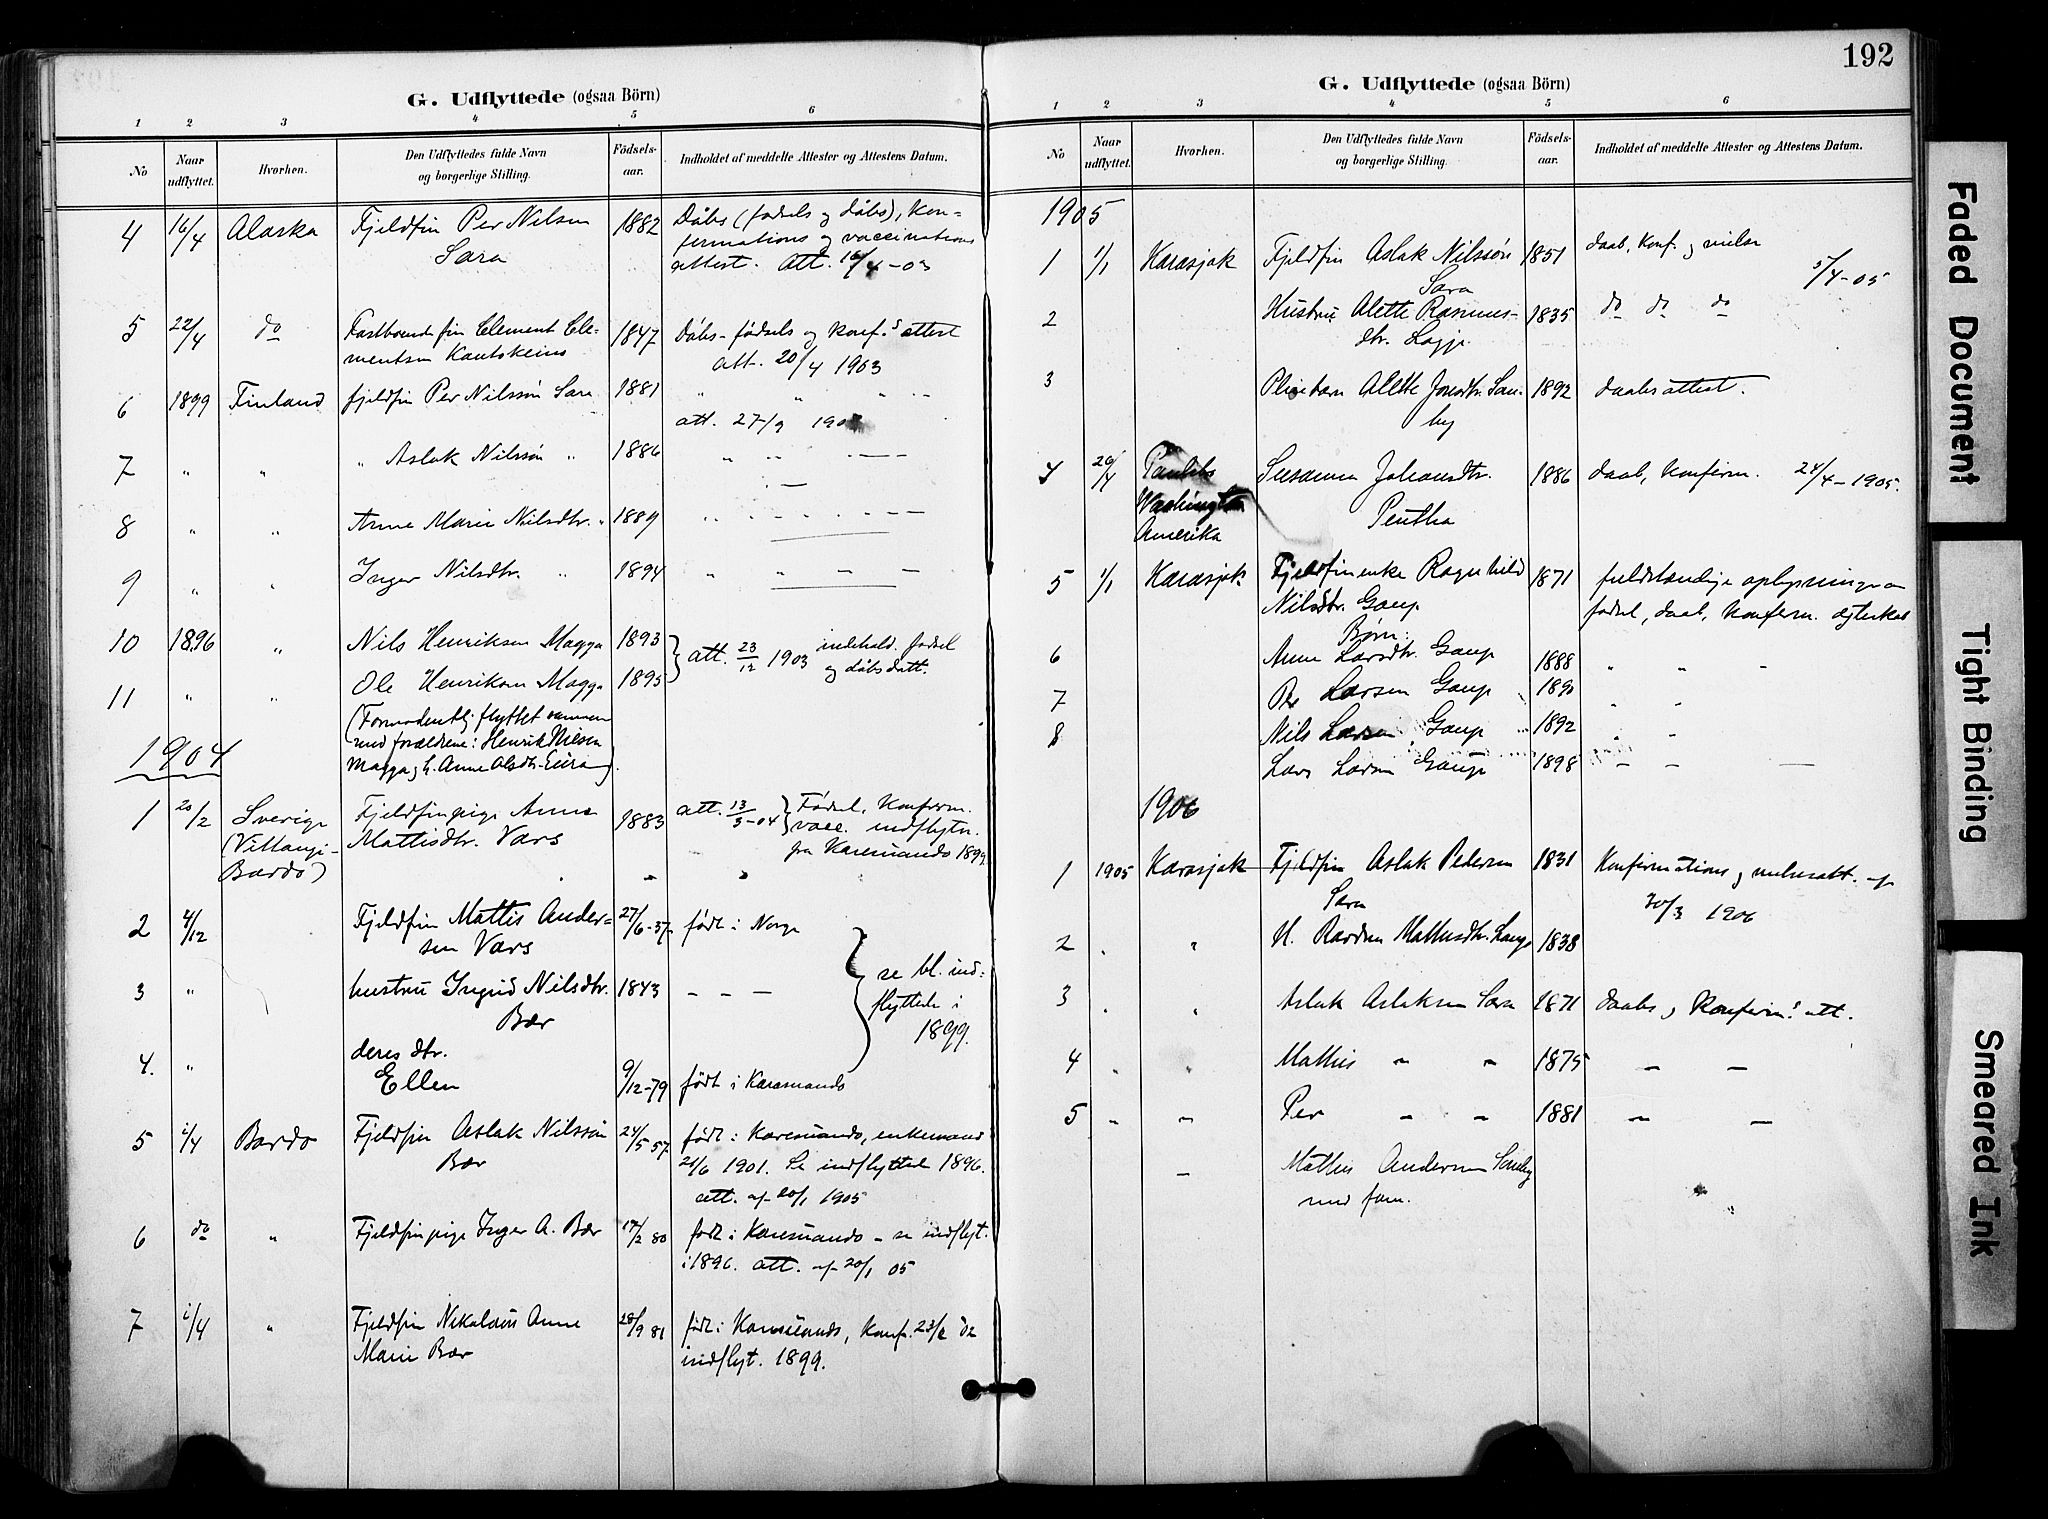 192
G. Udflyttede (ogsaa Börn)
1 2 3 4 5 6
No
Naar udflyttet.
Hvorhen.
Den Udflyttedes fulde Navn og borgerlige Stilling.
Födsels-aar.
Indholdet af meddelte Attester og Attestens Datum.
4 16/4 Alaska Fjeldfin Per Nilsen 1882 Dåbs (fødsels og dåbs), Kon-
Sara firmations og vaccinations
attest. Att. 16/4-03
5 22/4 do Fastboende fin Clement Cle- 1847 Dåbs-fødsels og konf.s attest
mentsen Kautokeino att. 20/4 1903
6 1899 Finland fjeldfin Per Nilssøn Sara 1881 " " " "
att. 27/9 190
7 " " " Aslak Nilssøn " 1886 " " "
8 " " Anne Marie Nilsdtr. " 1889 " "
9 " " Inger Nilsdtr. " 1894 " " – –
10 1896 " Nils Henriksen Magga 1893 } att. 23/12 1903 indehold. fødsel
11 " " Ole Henriksen Magga 1895 og dåbsdatt.
(Formodentlig flyttet sammen
med forældrene: Henrik Nilsen
Magga og h. Anne Olsdtr. Eira).
1904
1 20/2 Sverige Fjeldfinpige Anne 1883 att. 13/3-04 } Fødsel, Konfirm.
(Vittangi- Mattisdtr. Vars vacc. indflytn.
Bardo) fra Karesuando 1899
2 4/12 Fjeldfin Mattis Ander- 27/6-37 født i Norge
sen Vars
3 " hustru Ingrid Nilsdtr. 1843 – – – } se bl. ind-
Bær flyttede i
1899.
4. " deres dtr.
Ellen 9/12-79 født i Karesuando
5 1/4 Bardo Fjeldfin Aslak Nilssøn 24/5 57 født i Karesuando, enkemand
Bær 21/6 1901. Se indflyttede 1896.
att. af 20/1 1905
6 do " Fjeldfinpige Inger A. Bær 17/2 80 født i Karesuando – se indflyt.
i 1896. att. af 20/1 05
7 1/4 " Fjeldfin Nikolaus Anne 28/9 81 født i Karesuando, Konf. 23/2
Marie Bær indflyt. 1899.
G. Udflyttede (ogsaa Börn)
1 2 3 4 5 6
No
Naar udflyttet.
Hvorhen.
Den Udflyttedes fulde Navn og borgerlige Stilling.
Födsels-aar.
Indholdet af meddelte Attester og Attestens Datum.
1905
1 1/1 Karasjok Fjeldfin Aslak Nilssøn 1851 daab, Konf. og vielse
Sara 5/4-05
2 Hustru Alette Rasmus- 1835 do do do
dtr.
3 Pleiebarn Alette Jonsdtr. Som- 1892 daabsattest.
by
4 26/4 Susanna Johansdtr. 1886 daab, konfirm. 24/4-1905.
Washington Pentha
Amerika
5 1/1 Karasjok Fjeldfinenke Ragnhild 1871 fuldstændige oplysninger om
Nilsdtr. Gaup fødsel, daab, konfirm. ægteskab
Børn:
6 Anne Larsdtr. Gaup 1888 " " –
7 Per Larsen Gaup 1890 " "
8 Nils Larsen Gaup 1892 " –
Lars Larsen Gaup 1898 – – –
1906
1 1905 Karasjok Fjeldfin Aslak Pedersen 1831 Konfirmations og vielsesatt. af
Sara 30/3 1906
2 " " H. Mathisdtr. 1838
3 " " Aslak Aslaksen Sara 1871 daabs og Konfirm.s att.
4 " " Mathis " " 1875 – –
5 " " Per " " 1881 – –
– Mathis Andersen Somby
med fam.
Faded Document
Tight Binding
Smeared Ink